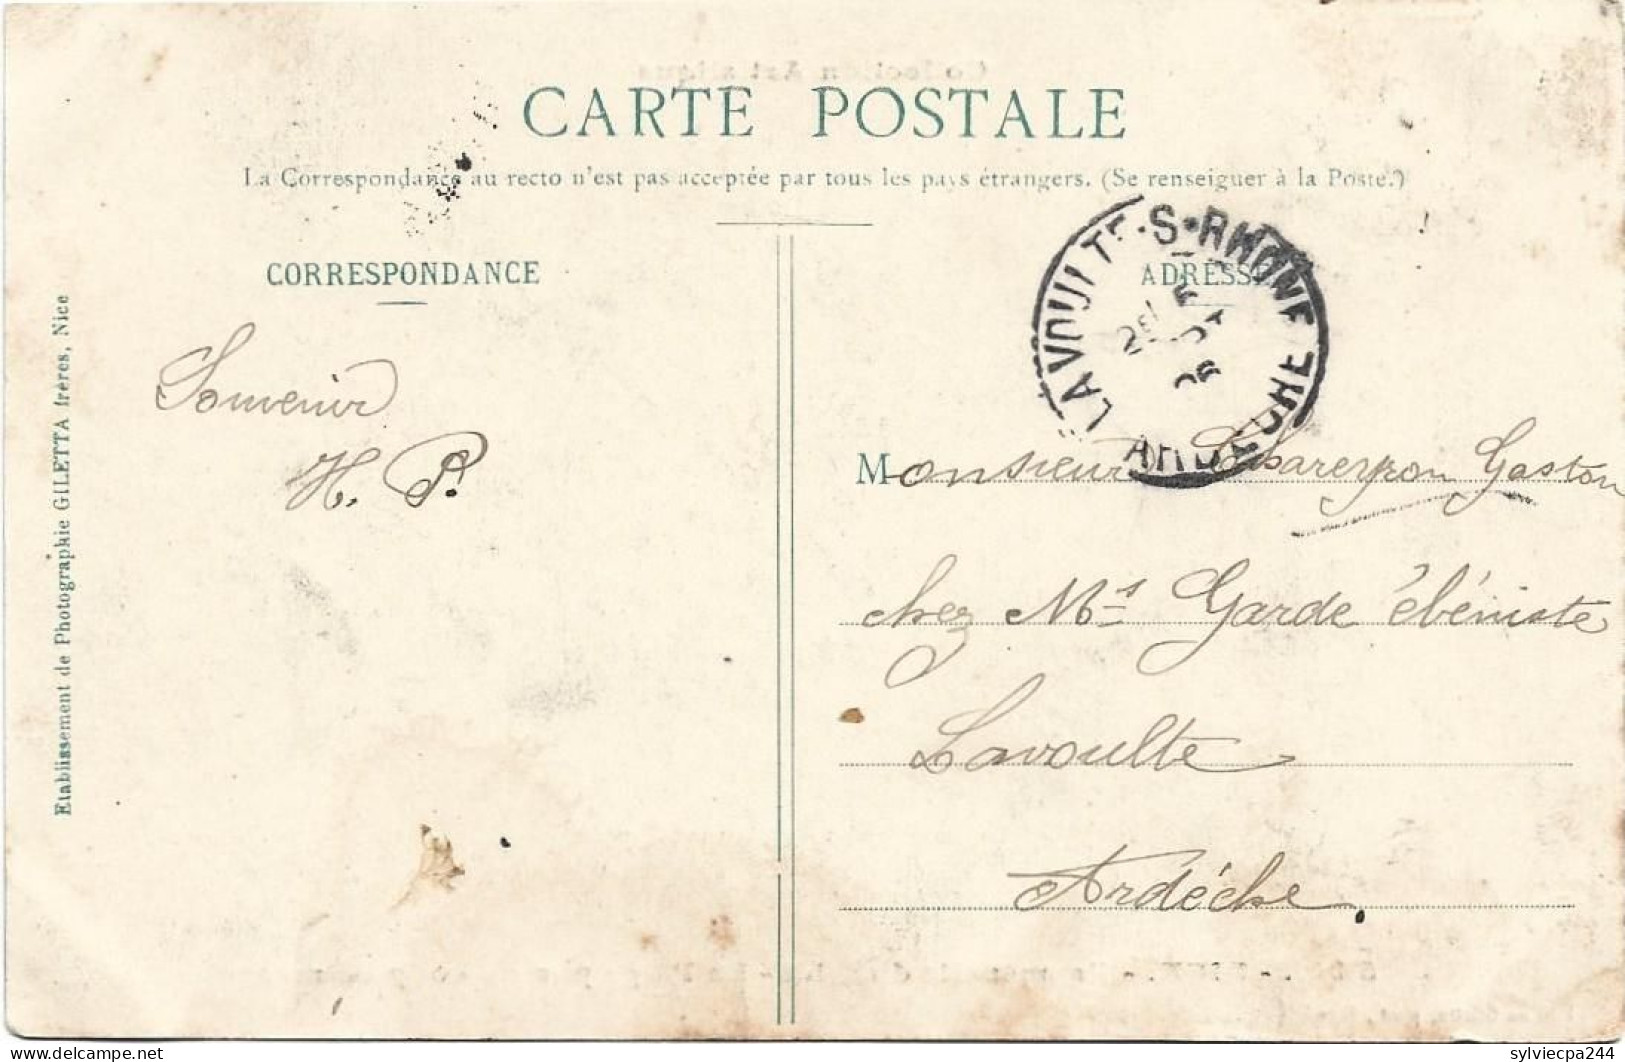 CARTE POSTALE
La Correspondance au recto n'est pas acceptée par tous les pays étrangers. (Se renseigner à la Poste.)
CORRESPONDANCE
Souvenir
H. P.
Etablissement de Photographie GILETTA frères, Nice
ADRESSE
LAVOULTE-S-RHONE
ARDECHE
Monsieur Chareyron Gaston
chez Mr Garde ébéniste
Lavoulte
Ardéche.
sylviecpa244